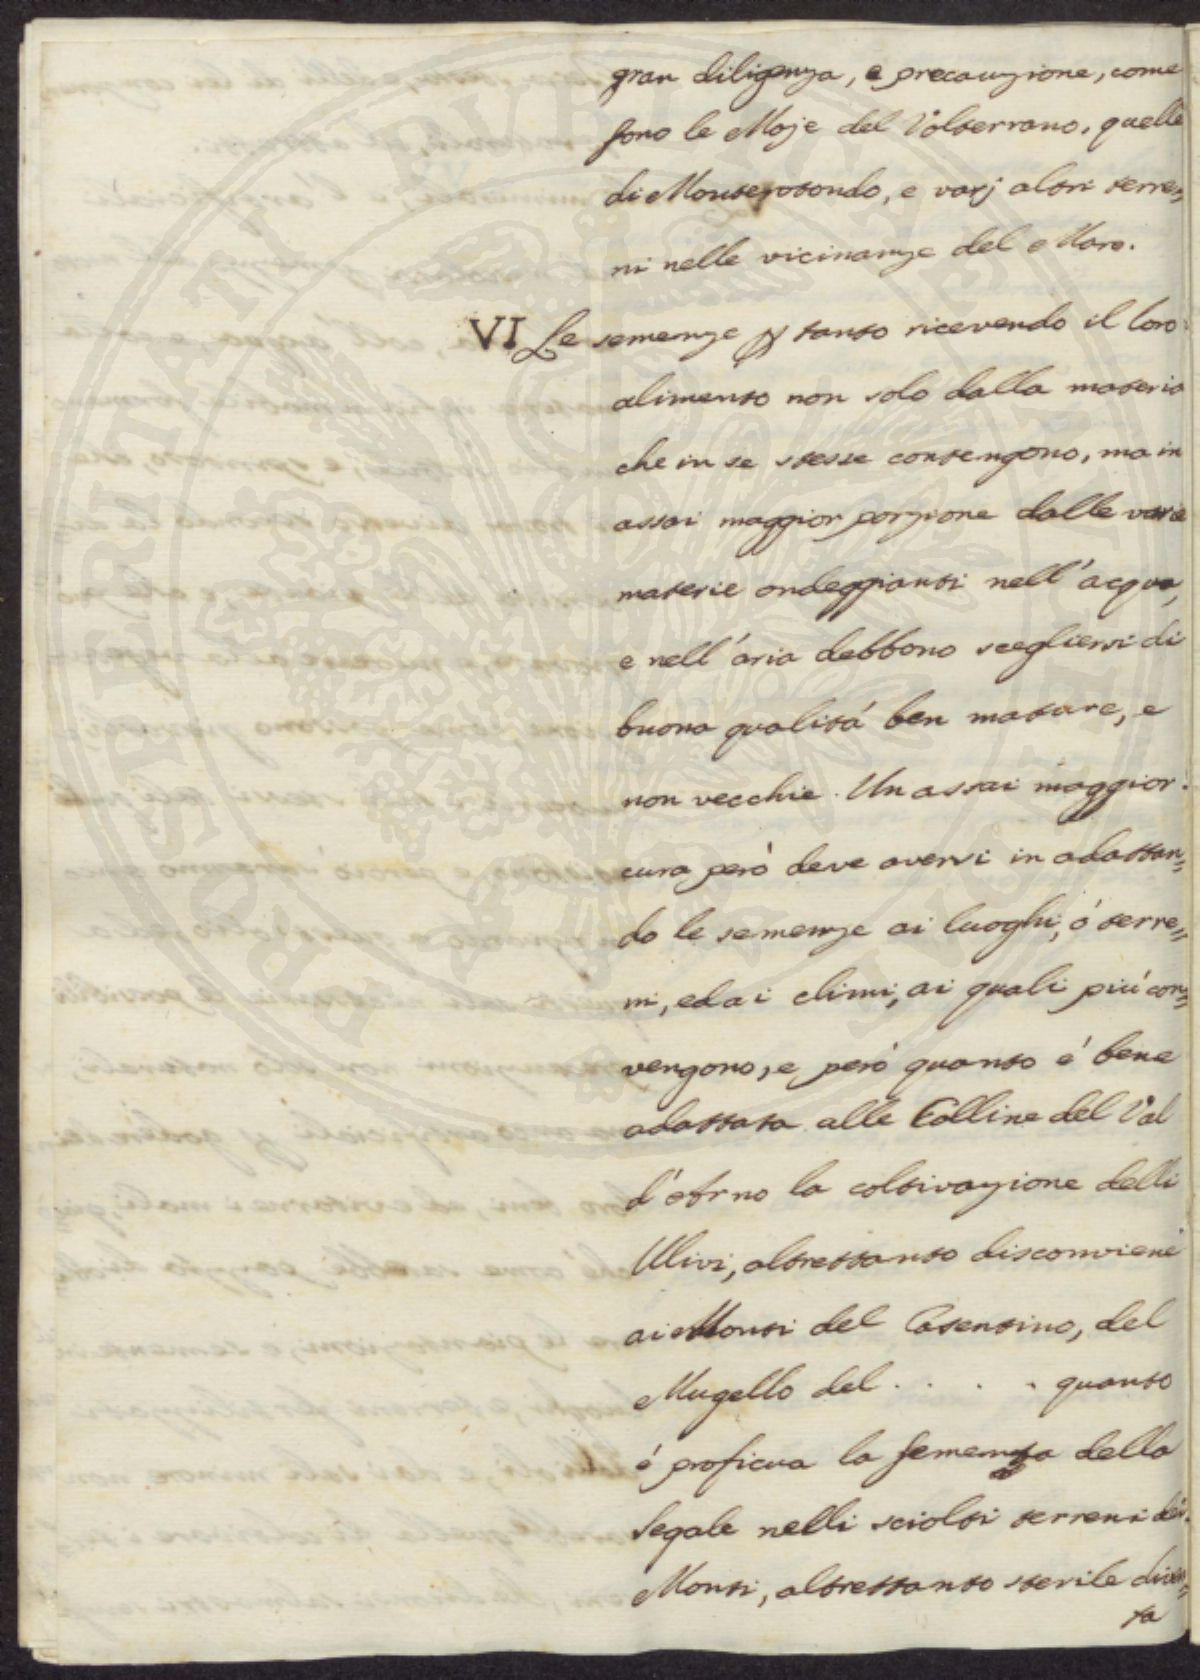 gran diligenza, e precauzione, come
sono le Moje del Volterrano, quelle
di Monterotondo, e varj altri terre=
ni nelle vicinanze del Mare.
VI Le semenze tanto ricevendo il loro
alimento non solo dalla materia
che in se stesse contengono, ma in
assai maggior porzione dalle varie
materie ondeggianti nell'acqua,
e nell'aria debbono scegliersi di
buona qualitá ben mature, e
non vecchie. Un assai maggior
cura però deve aversi in adattan=
do le semenze ai luoghi, ó terre=
ni, ed ai climi, ai quali piú con=
vengono, e però quanto é bene
adattata alle Colline del Val
d'Arno la coltivazione delli
Ulivi, altrettanto disconviene
ai Monti del Casentino, del
Mugello del . . . . quanto
é proficua la Sementa della
Segale nelli sciolti terreni dei
Monti, altrettanto sterile diven=
ta
PROSPERITATI PUBLICAE AUGENDAE